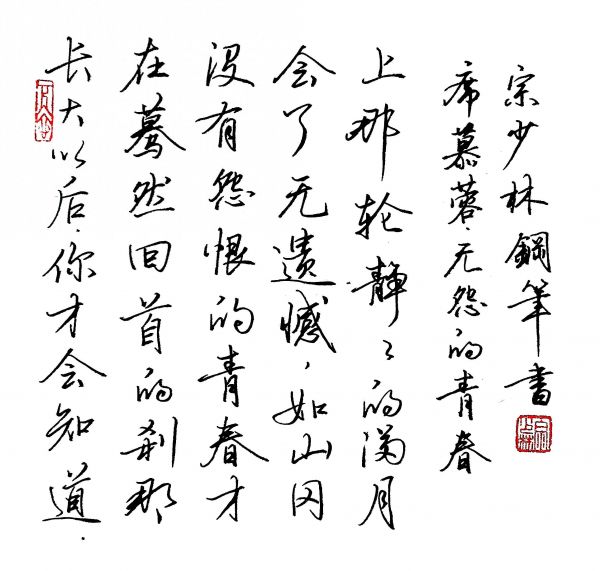 长大以后，你才会知道，
在驀然回首的刹那
没有怨恨的青春才
会了无遗憾，如山冈
上那轮静々的满月
席慕蓉·无怨的青春
宗少林鋼筆書